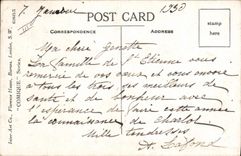 7 Janvier 1930
POST CARD
CORRESPONDENCE
ADDRESS
"COMIQUE" Series.
Inter-Art Co., Florence House, Barnes, London, S.W.
Ma chère Ginette
La famille de St Etienne vous
remercie de vos vœux et vous envoie
à tous les trois ses meilleurs de
santé et de bonheur avec
l'espérance de faire cette année
la connaissance de Charlot
Mille tendresses
A. Lafond